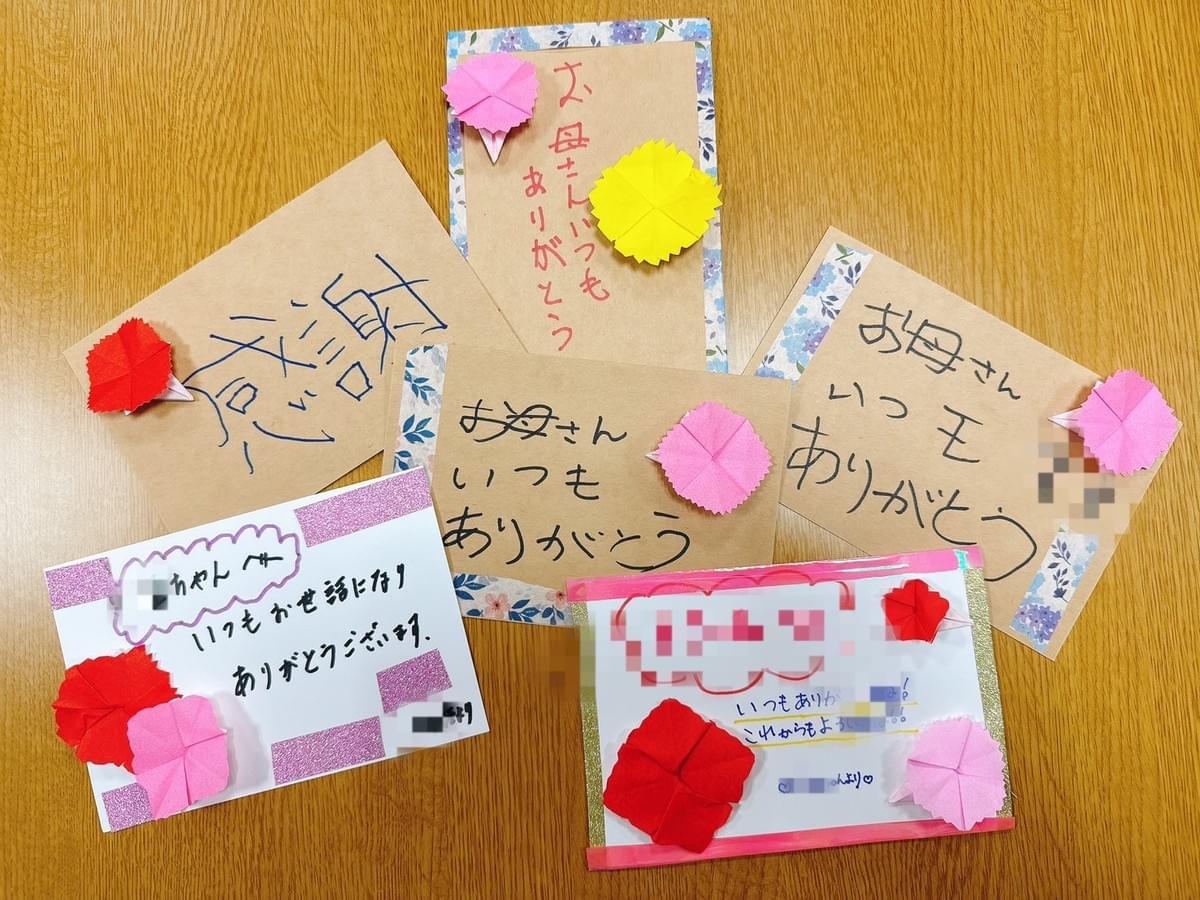 お母さんいつも
ありがとう
感謝
お母さん
いつも
ありがとう
お母さん
いつモ
ありがとう
ちゃんへ
いつもお世話になり
ありがとうございます.
より
いつもあり
これからもよ
んより♡